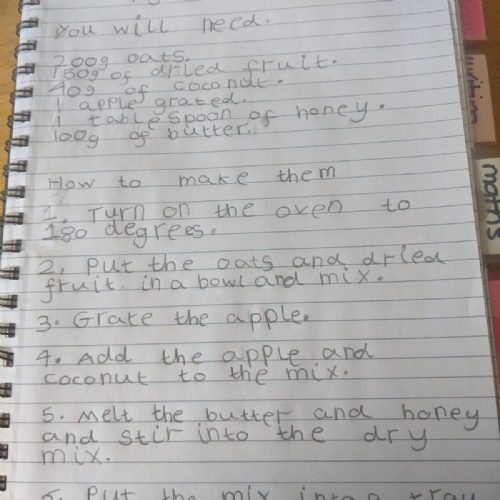 You will need.
200g oats.
150g of dried fruit.
40g of coconut.
1 apple grated.
1 tablespoon of honey.
100g of butter.
How to make them
1. Turn on the oven to
180 degrees.
2. Put the oats and dried
fruit in a bowl and mix.
3. Grate the apple.
4. Add the apple and
coconut to the mix.
5. Melt the butter and honey
and stir into the dry
mix.
Put the mix into a tray
maths